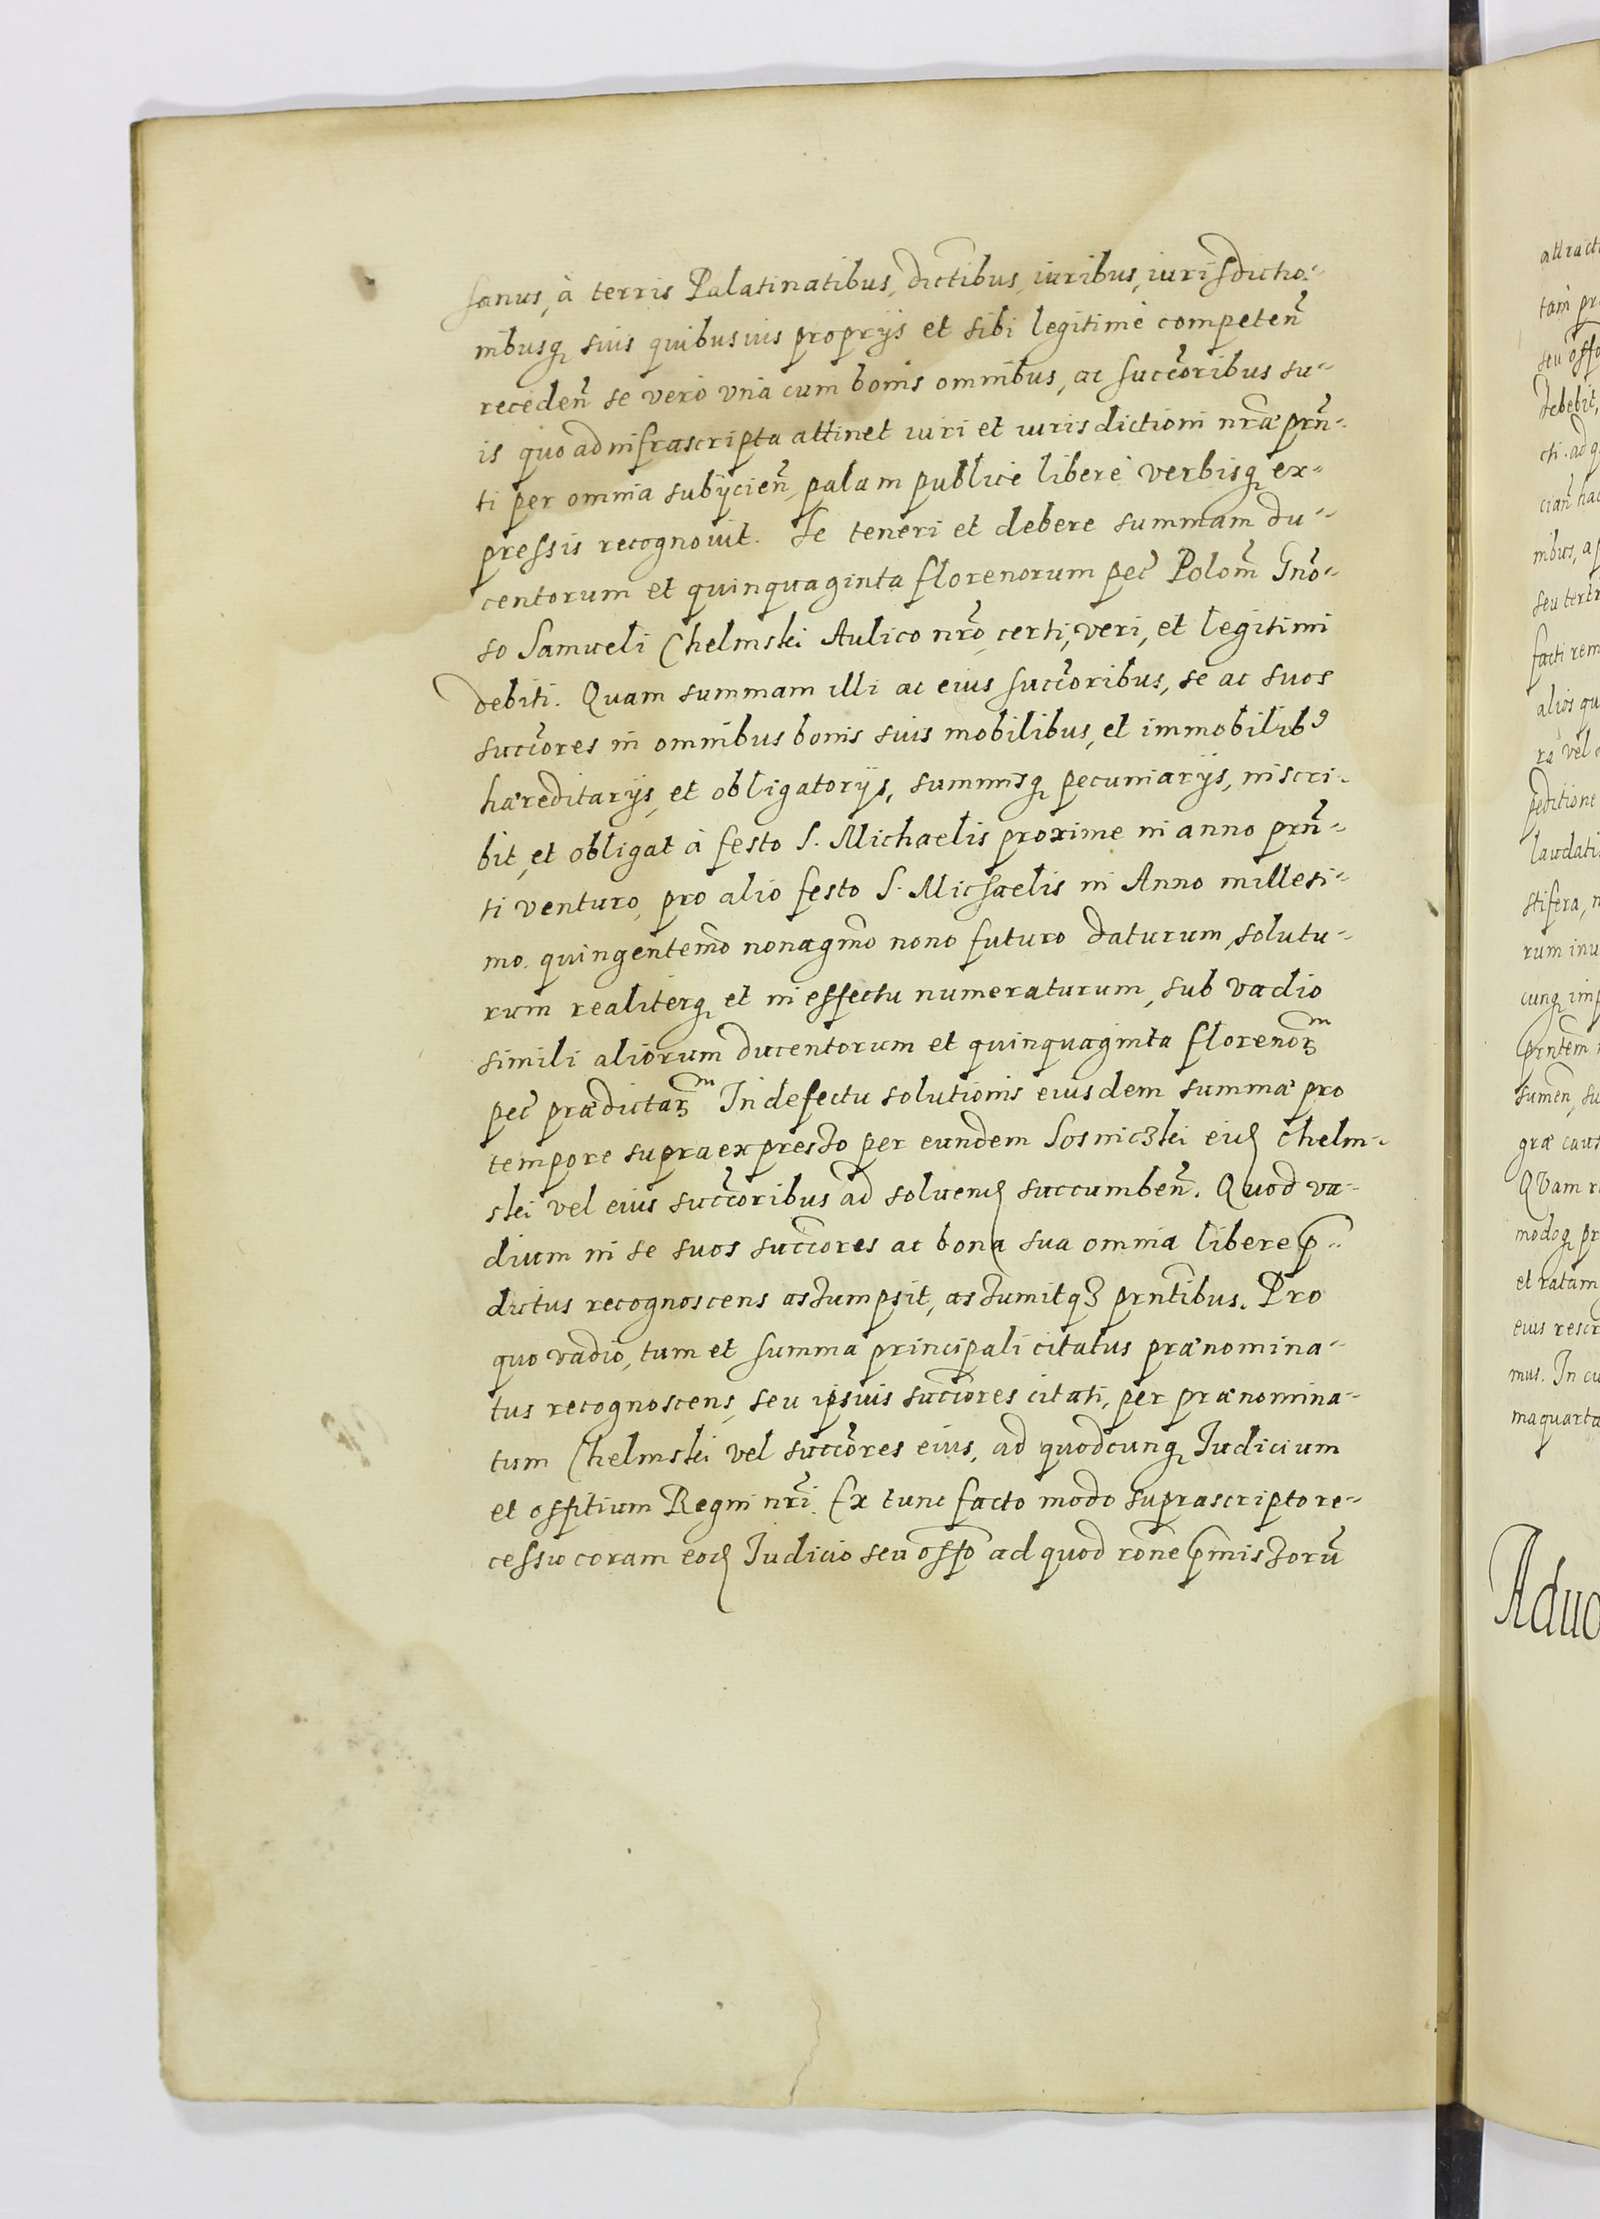 sanus, à terris Palatinatibus, dictibus, iuribus, iurisdictio⸗
nibusq; suis quibusuis proprijs et sibi legitimè competeñ
recedeñ se verò vnà cum bonis omnibus, ac succ̃oribus su⸗
is quo ad infrascripta attinet iuri et iurisdictioni nr̃æ prñ⸗
ti per omnia subijcieñ, palam publicè liberè verbisq; ex⸗
pressis recognouit. Se teneri et debere summam du⸗
centorum et quinquaginta florenorum pec̃ Polom̃ Gnõ⸗
so Samueli Chelmski Aulico nr̃o, certi, veri, et legitimi
debiti. Quam summam illi ac eius succ̃oribus, se ac suos
succ̃ores in omnibus bonis suis mobilibus, et immobilibꝰ
hæreditarijs, et obligatorijs, summisq; pecuniarijs, inscri⸗
bit, et obligat à festo S. Michaelis proxime in anno prñ⸗
ti venturo, pro alio festo S. Michaelis in Anno millesi⸗
mo. quingentem̃o nonagm̃o nono futuro daturum, solutu⸗
rum realiterq; et in effectu numeraturum, sub vadio
simili aliorum ducentorum et quinquaginta florenorꝫᵐ
pec̃ prædictarꝫᵐ In defectu solutionis eiusdem summæ pro
tempore supraexpresso per eundem Sosniczki eid chelm⸗
ski vel eius succ̃oribus ad soluend succumbeñ. Quod va⸗
dium in se suos succ̃ores ac bona sua omnia libere p̃⸗
dictus recognoscens assumpsit, assumitqꝫ prñtibus. Pro
quo vadio, tum et summa principali citatus prænomina⸗
tus recognoscens, seu ipsius succ̃ores citati, per prænomina⸗
tum Chelmski vel succ̃ores eius, ad quodcunq; Iudicium
et offitium Regni nr̃i. Ex tunc facto modo suprascripto re⸗
cessu coram eod Iudicio seu off̃o ad quod rõne p̃missorũ
tam pr
debebit,
facti rem
alios qu
peditione
laudati
stifera,
rum inu
cunq; imp
græ caus
QVam r
modoq; pr
et ratam
eius rescr
mus. In cu
ma quarta
Aduo